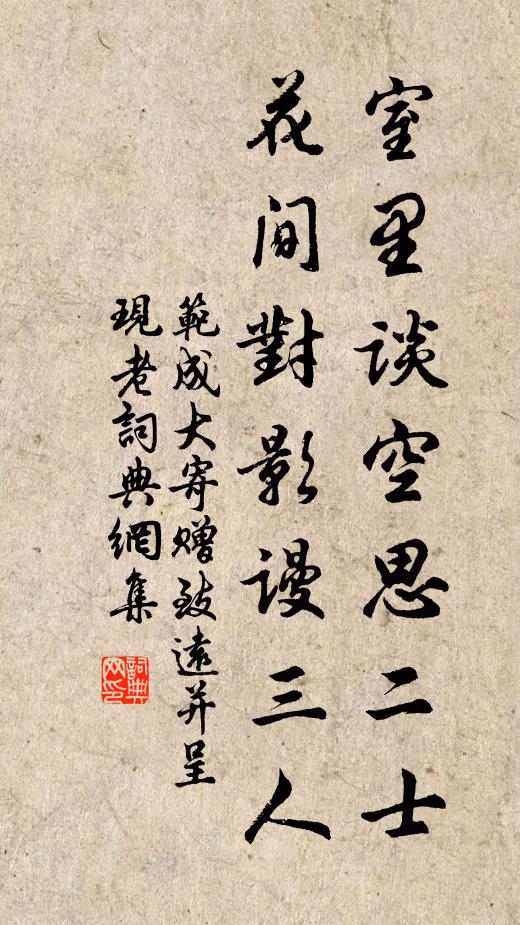 室里談空思二士
花間對影謾三人
範成大寄贈致遠并呈
現老詞典網集
詞典网印